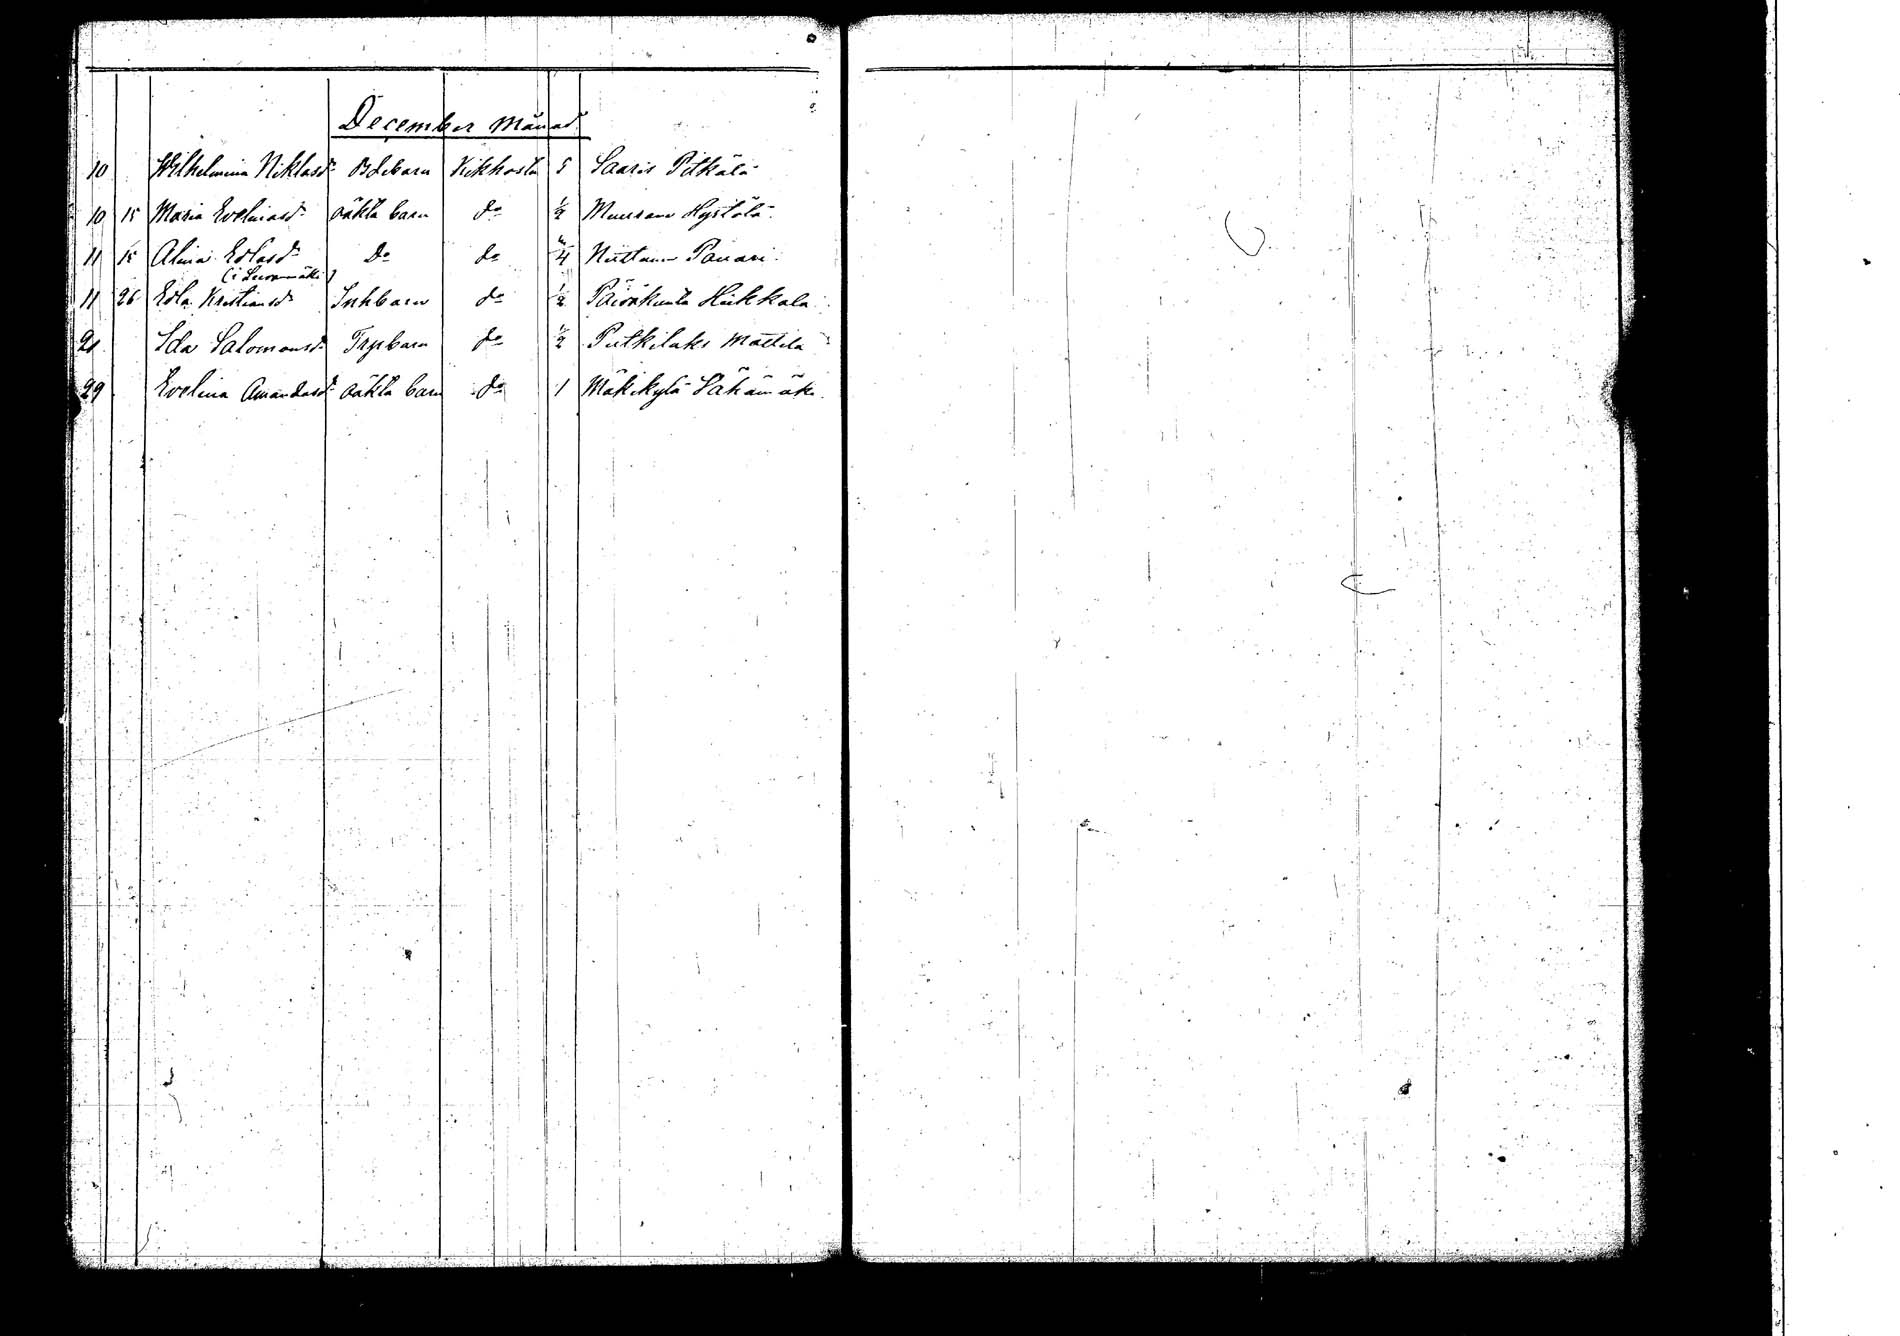 December månad
10 Wilhelmina Niklasdr Bdebarn Kikhosta 5 Saaris Pitkälä
10 15 Maria Evelinasdr oäkta barn do 1/2 Muurane Hystölä
11 15 Alina Edlasdr Do do 4
11 26 Edla Kristiansdr Inhbarn do 1/2 Päivökunta Hiekkala
21 Ida Salomonsdr Trpbarn do 1/2 Putkilaks Mattila
29 Evelina Amandasdr oäkta barn do 1 Mäkikylä Lähämäki